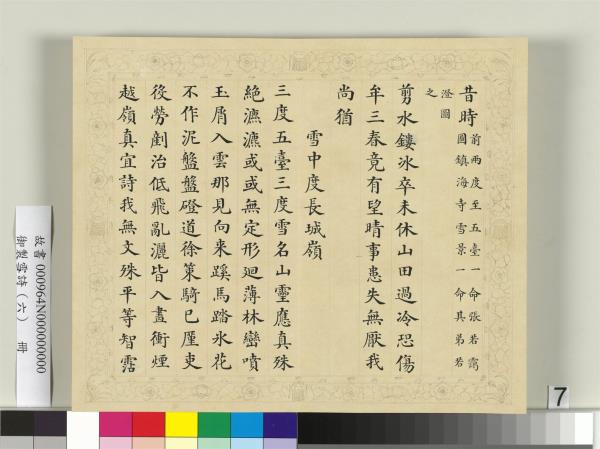 昔時前兩度至五臺一命張若靄圖鎮海寺雪景一命其弟若
澄圖之
剪水鏤冰卒未休山田過冷恐傷
牟三春竟有望晴事患失無厭我
尚猶
雪中度長城嶺
三度五臺三度雪名山靈應真殊
絶瀌瀌或或無定形迴薄林巒噴
玉屑入雲那見向来蹊馬踏氷花
不作泥盤盤磴道徐策騎已厪吏
後勞剷治低飛亂灑皆入畫衝煙
越嶺真宜詩我無文殊平等智霑
故書 000964N000000000
御製雪詩（六） 冊
7